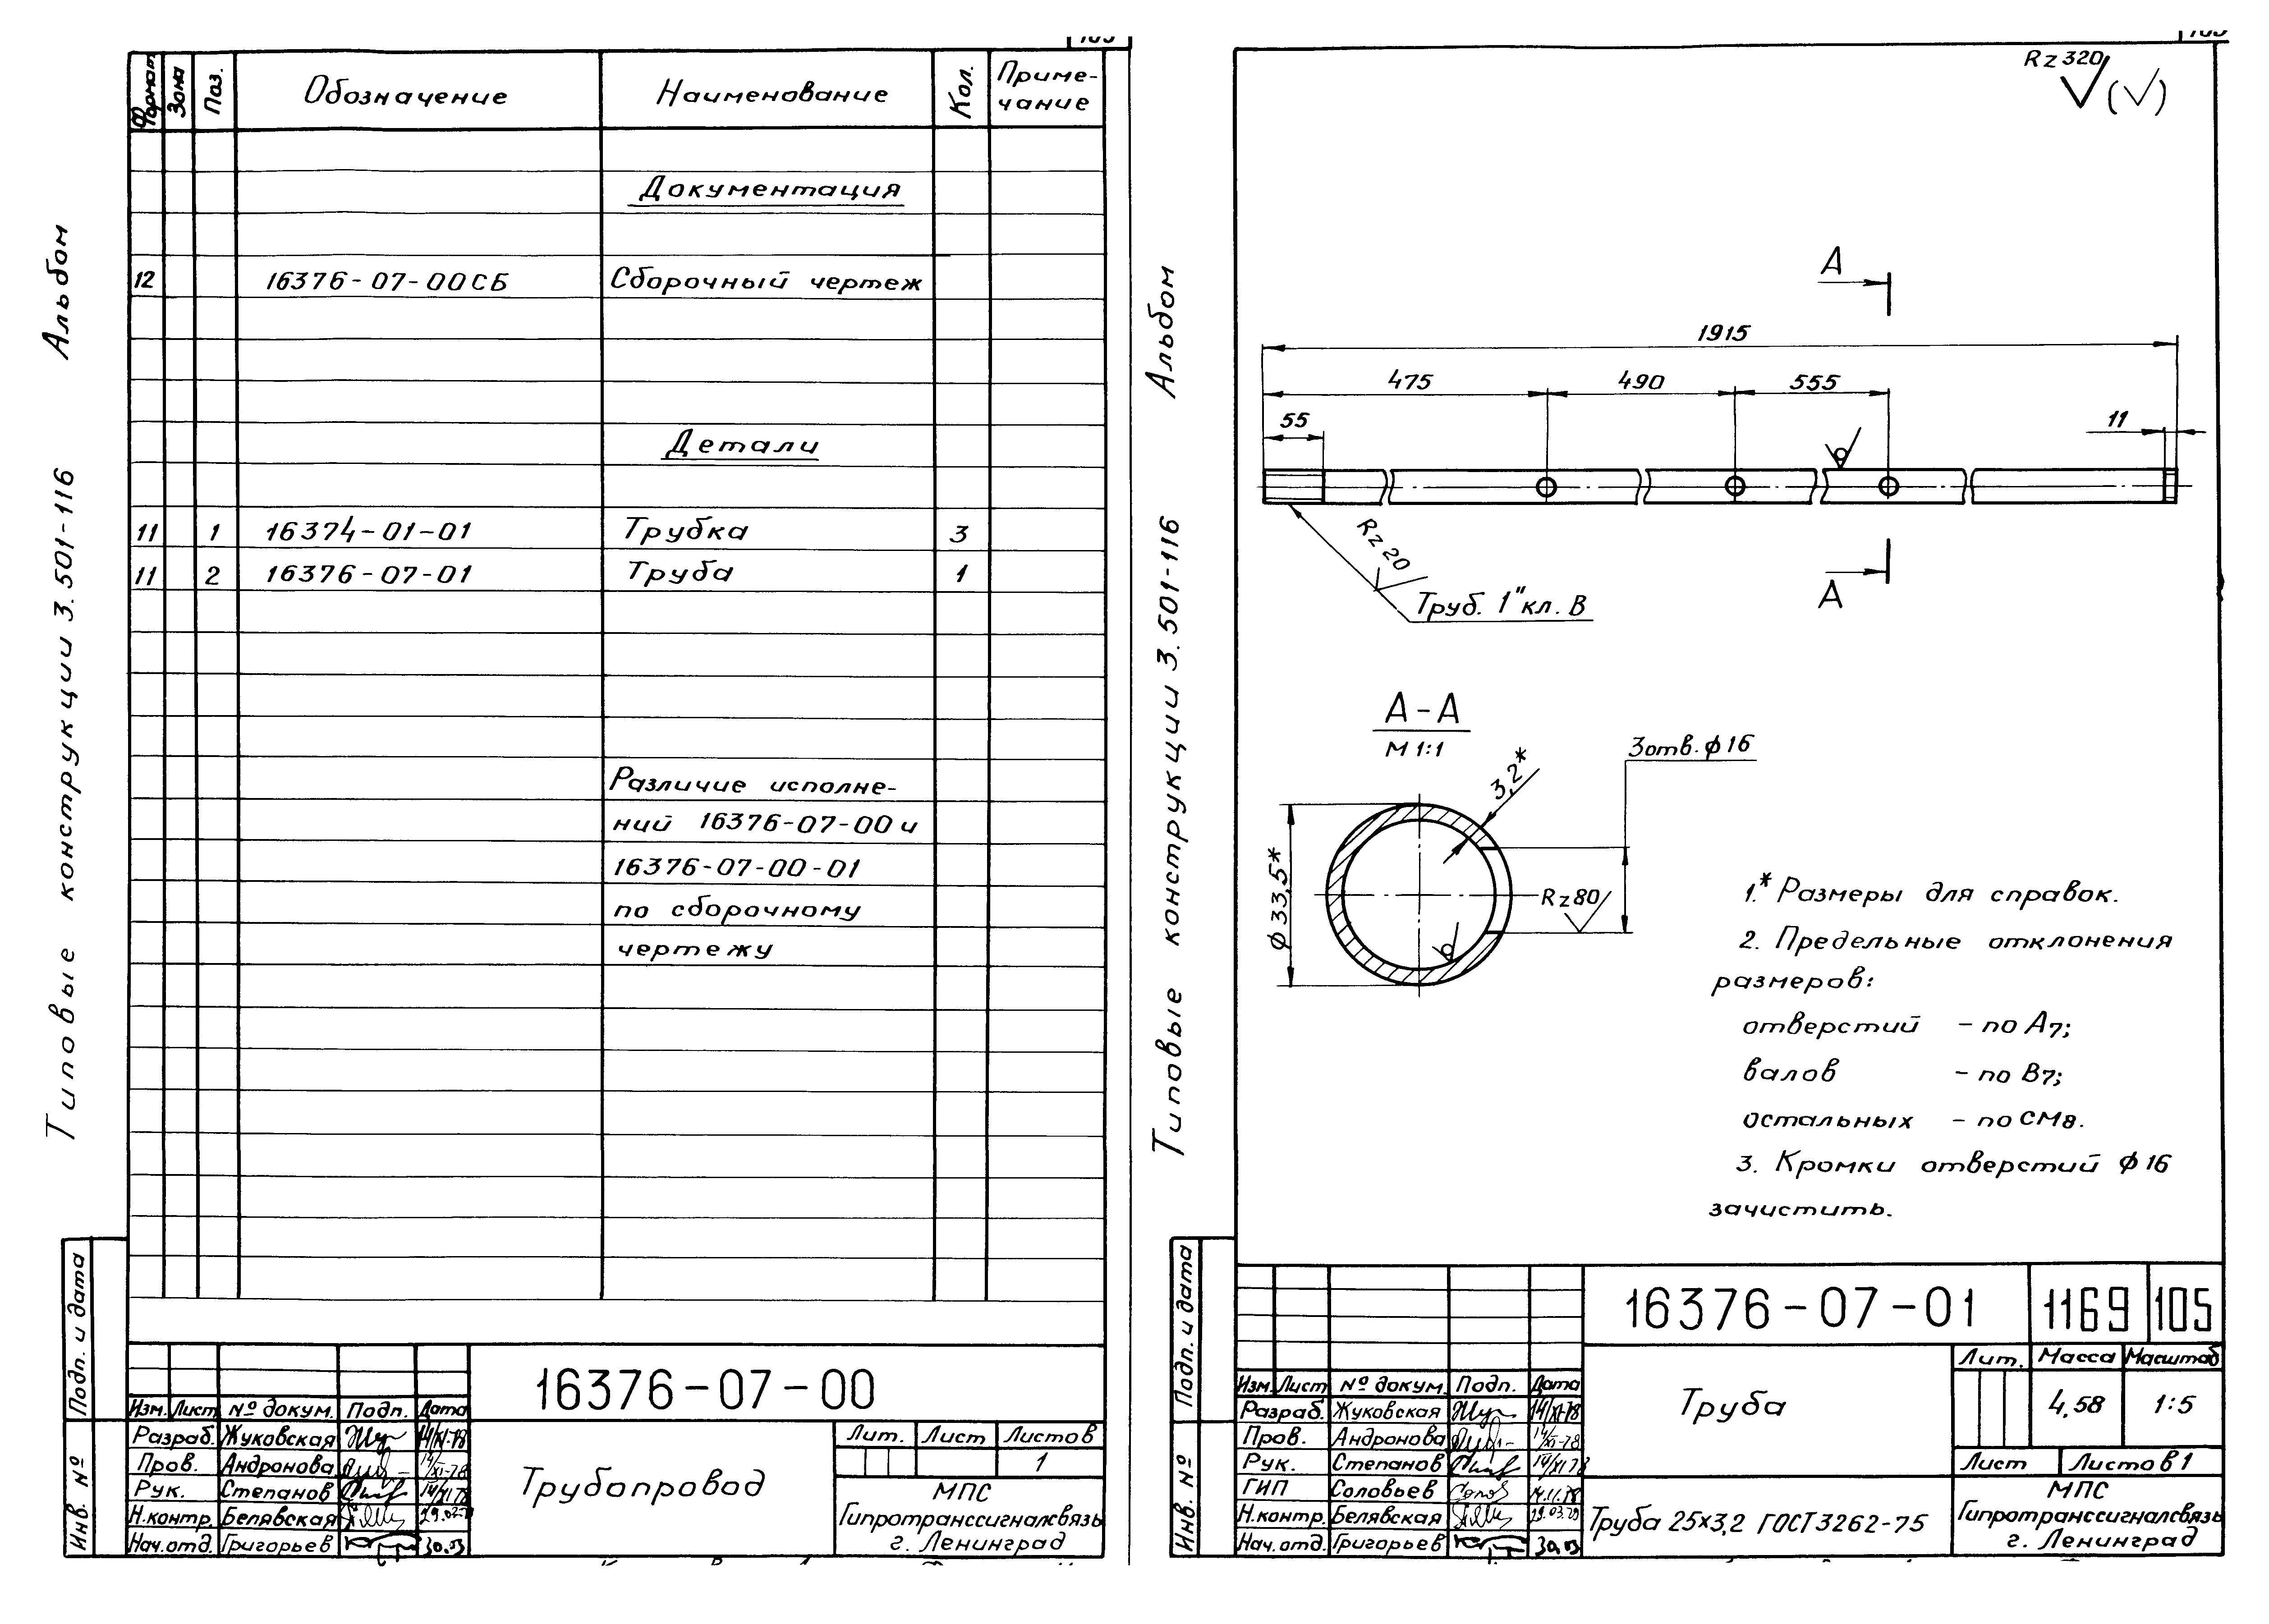 Типовые конструкции 3.501-116 Альбом
Подп. и дата
Инв. №
Формат Зона Поз. Обозначение Наименование Кол. Приме-
чание
Документация
12 16376-07-00СБ Сборочный чертеж
Детали
11 1 16374-01-01 Трубка 3
11 2 16376-07-01 Труба 1
Различие исполне-
ний 16376-07-00 и
16376-07-00-01
по сборочному
чертежу
16376-07-00
Изм. Лист № докум. Подп. Дата
Разраб. Жуковская 14/XI-78
Пров. Андронова 14/XI-78
Рук. Степанов 14/XI 78
Н.контр. Белявская
Нач.отд. Григорьев 30.03
Трубопровод
Лит. Лист Листов
1
МПС
Гипротранссигналсвязь
г. Ленинград
Типовые конструкции 3.501-116 Альбом
Подп. и дата
Инв. №
Rz320
(√)
А
1915
475 490 555
55 11
Rz20
Труб. 1" кл. В
А
А-А
М 1:1
3отв. ф16
3,2*
ф33,5*
Rz80
1.* Размеры для справок.
2. Предельные отклонения
размеров:
отверстий - по А7;
валов - по В7;
остальных - по СМ8.
3. Кромки отверстий ф16
зачистить.
16376-07-01 1169 105
Изм. Лист № докум. Подп. Дата
Разраб. Жуковская 14/XI-78
Пров. Андронова 14/XI-78
Рук. Степанов 14/XI 78
ГИП Соловьев 14.11.78
Н.контр. Белявская 29.03.79
Нач.отд. Григорьев 30.03
Труба
Лит. Масса Масштаб
4,58 1:5
Лист Листов 1
Труба 25х3,2 ГОСТ3262-75
МПС
Гипротранссигналсвязь
г. Ленинград